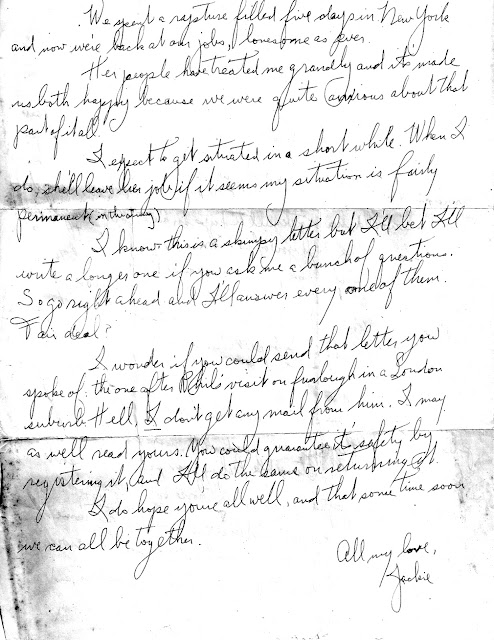 We spent a rapture filled five days in New York
and now we're back at our jobs, lonesome as ever.
Her people have treated me grandly and it's made
us both happy because we were quite anxious about that
part of it all.
I expect to get situated in a short while. When I
do, she'll leave her job if it seems my situation is fairly
permanent (in the army)
I know this is a skimpy letter but I'll bet I'll
write a longer one if you ask me a bunch of questions.
So go right ahead and I'll answer every one of them.
Fair deal?
I wonder if you could send that letter you
spoke of, the one after Phil's visit on furlough in a London
suburb. Hell, I don't get any mail from him. I may
as well read yours. You could guarantee it's safety by
registering it, and I'll do the same on returning it.
I do hope you're all well, and that some time soon
we can all be together.
All my love,
Jackie